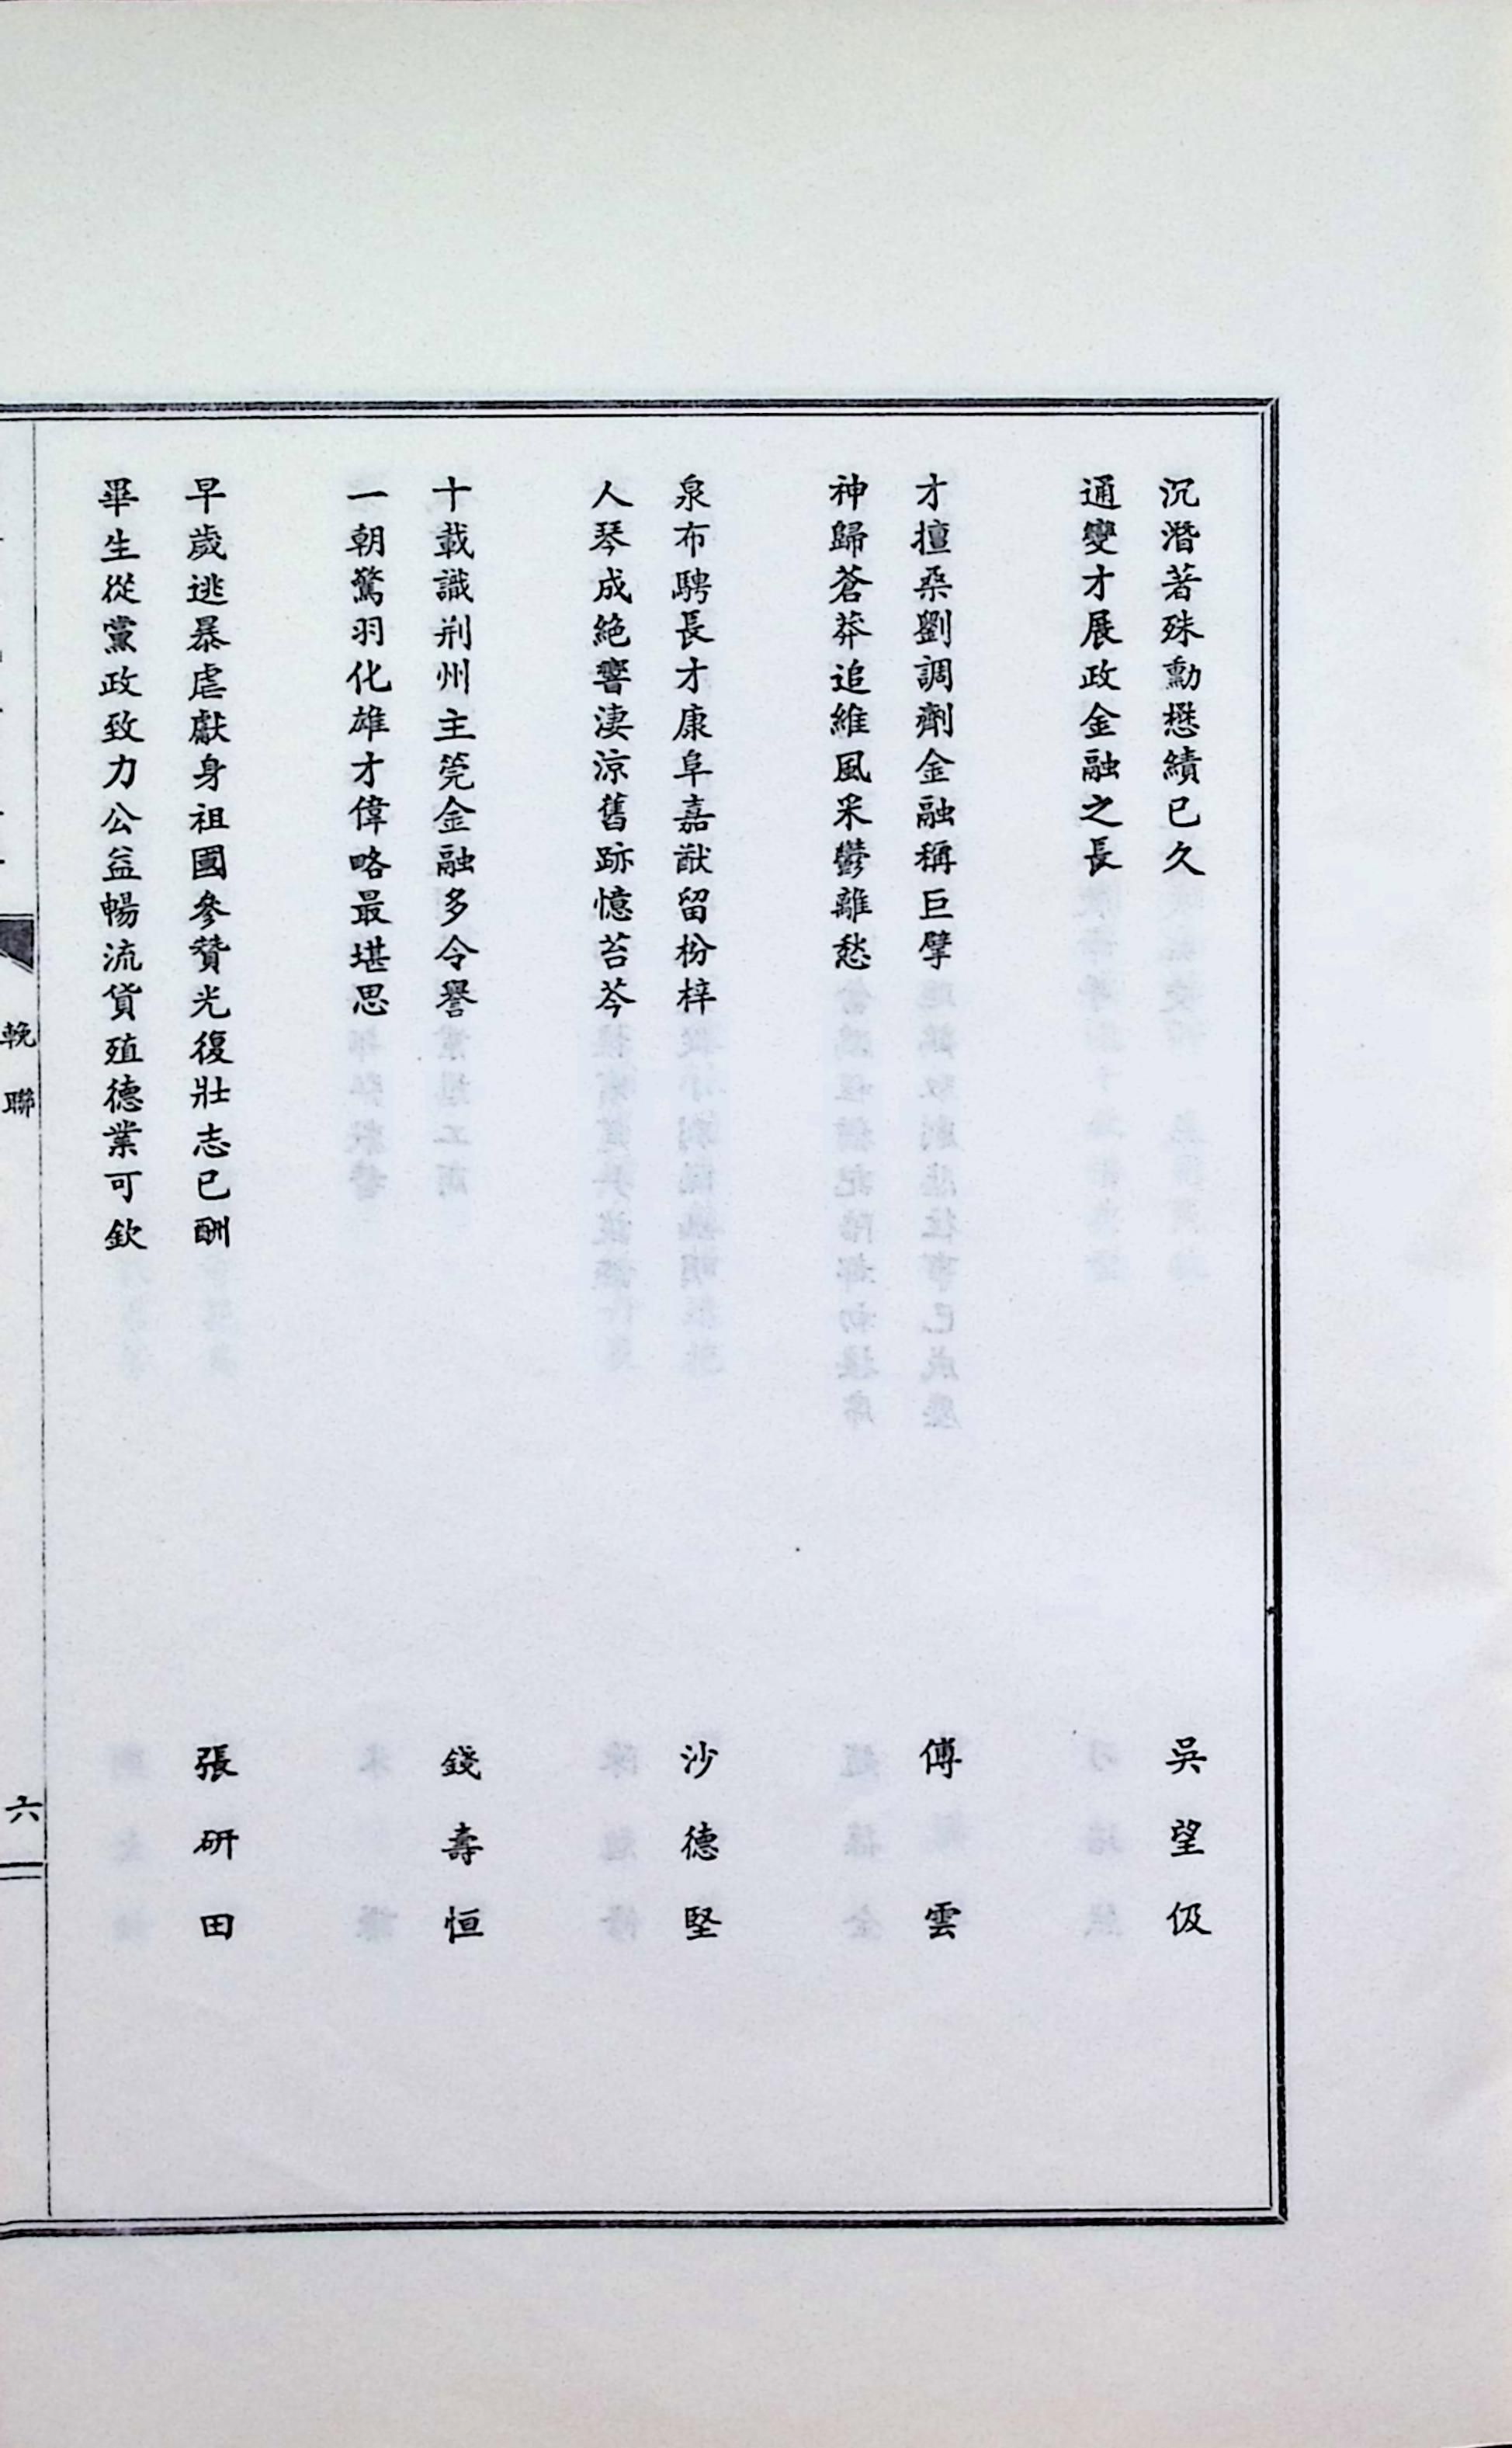 沉潛著殊勳懋績已久
吳望伋
通變才展政金融之長
才擅桑劉調劑金融稱巨擘
傅雲
神歸蒼莽追維風釆鬱離愁
泉布騁長才康阜嘉猷留枌梓
沙德堅
人琴成絶響淒涼舊跡憶苔芩
十載識荊州主筦金融多令譽
錢壽恒
一朝驚羽化雄才偉略最堪思
早歲逃暴虐獻身祖國參贊光復壯志已酬
張研田
畢生從黨政致力公益暢流貨殖德業可欽
輓聯
六